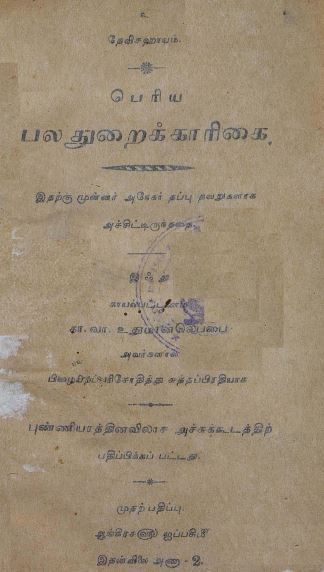 உ
தேவிசஹாயம்.
பெரிய
பலதுறைக்காரிகை.
இதற்கு முன்னர் அநேகர் தப்பு தவறுகளாக
அச்சிட்டிருந்ததை,
இஃது
காயல்பட்டணம்
கா. வா. உதுமான்லெப்பை
அவர்களால்
பிழையறப்பரிசோதித்து சுத்தப்பிரதியாக
புண்ணியரத்தினவிலாச அச்சுக்கூடத்திற்
பதிப்பிக்கப் பட்டது.
முதற் பதிப்பு.
ஆங்கிரச ஐப்பசி
இதன்விலை அணா - 2.